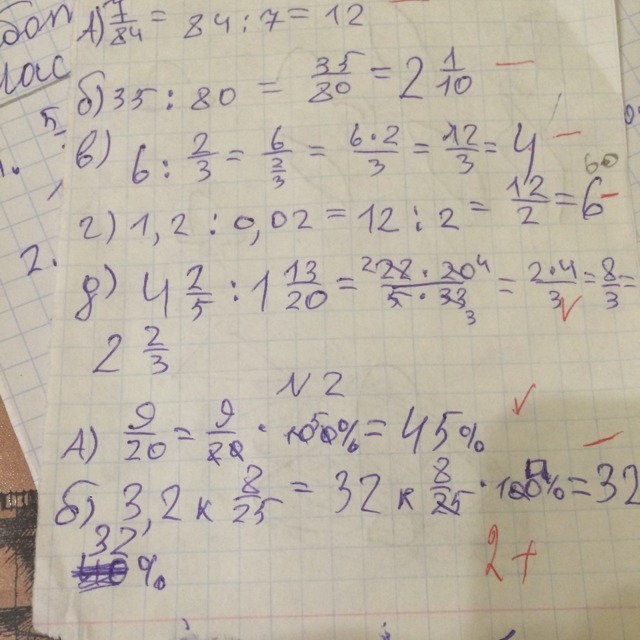 А) 7/84 = 84 : 7 = 12
б) 35 : 80 = 35/80 = 2 1/10 —
в) 6 : 2/3 = 6/(2/3) = 6·2/3 = 12/3 = 4 —
60
г) 1,2 : 0,02 = 12 : 2 = 12/2 = 6 -
2.
д) 4 2/5 : 1 13/20 = 2 22 · 20 4 / 5 · 33 3 = 2·4/3 = 8/3 =
2 2/3
N 2
А) 9/20 = 9/20 · 100% = 45%
б) 3,2 к 8/25 = 32 к 8/25 · 100% = 32
32
%
2+